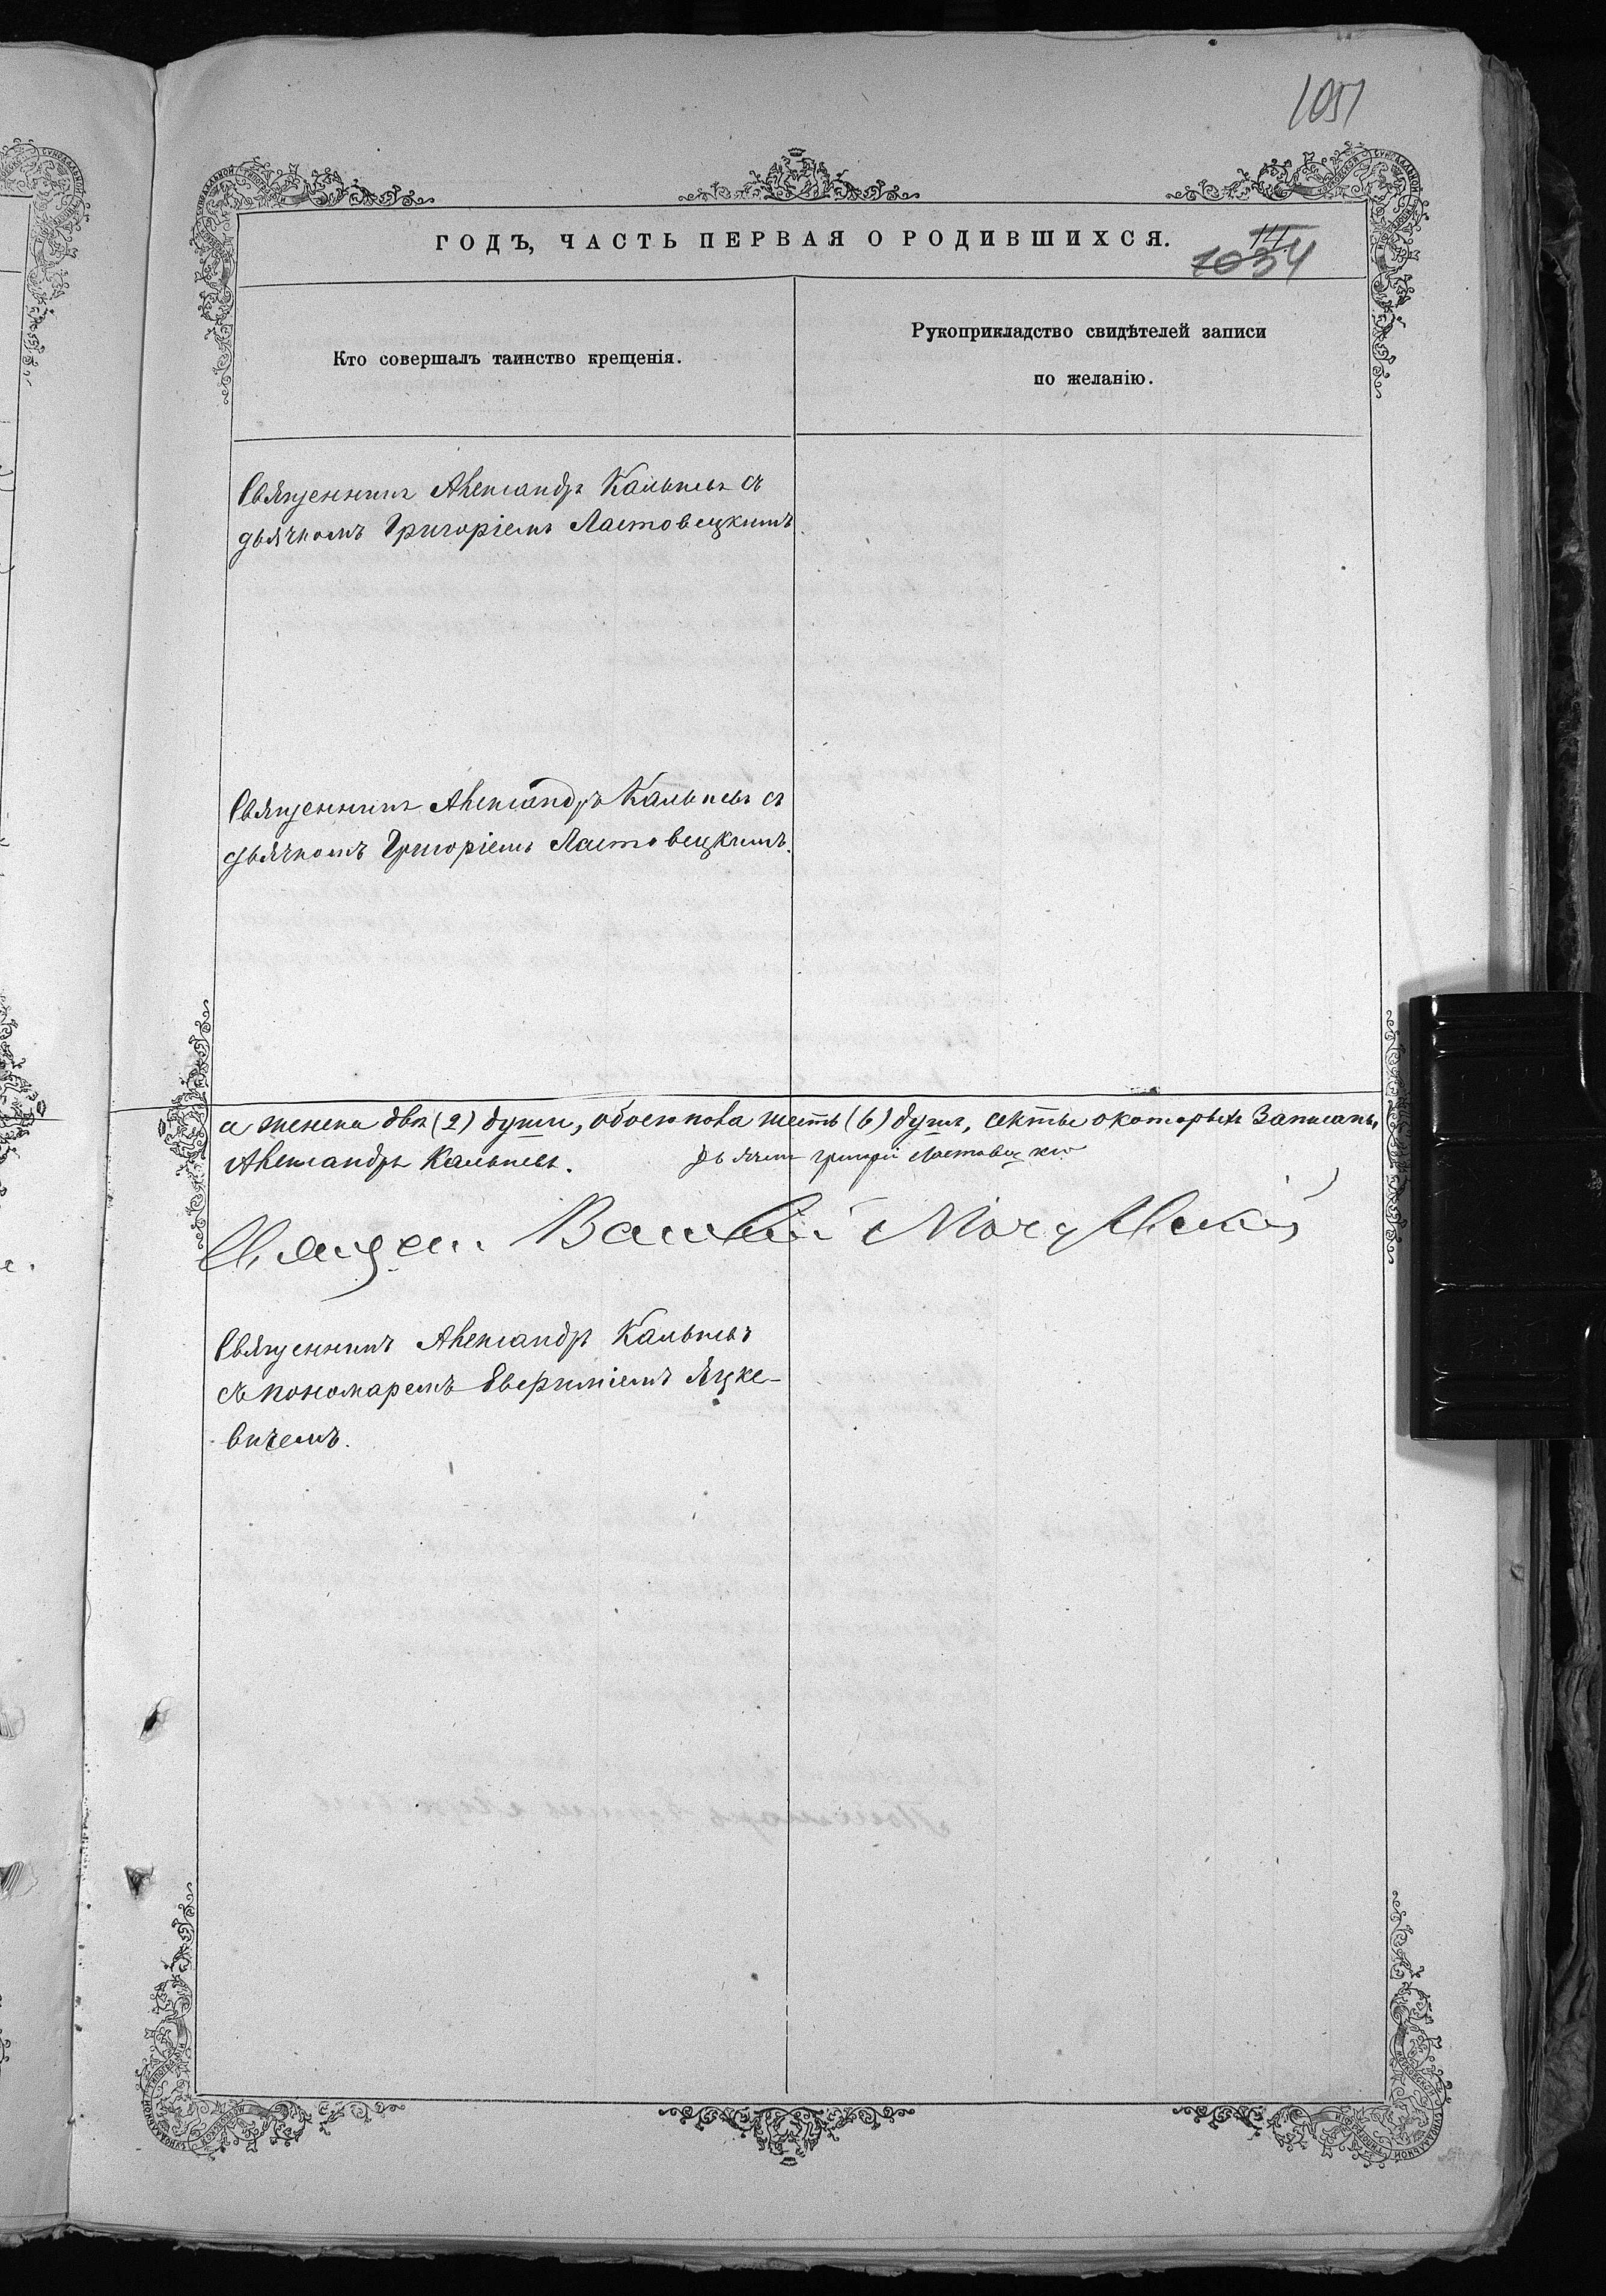 1051
ГОДЪ, ЧАСТЬ ПЕРВАЯ О РОДИВШИХСЯ.
1034
Кто совершалъ таинство крещенія.
Рукоприкладство свидѣтелей записи
по желанію.
Священникъ Александръ Кальневъ съ
дьячкомъ Григоріемъ Ластовецкимъ
Священникъ Александръ Кальневъ съ
дьячкомъ Григоріемъ Ластовецкимъ.
а женска двѣ (2) души, обоего пола шесть (6) душъ, о которыхъ записаны
Александръ Кальневъ. Дьячекъ Григорій Ластовецкій
Священникъ Александръ Кальневъ
съ пономаремъ Яцке-
вичемъ.